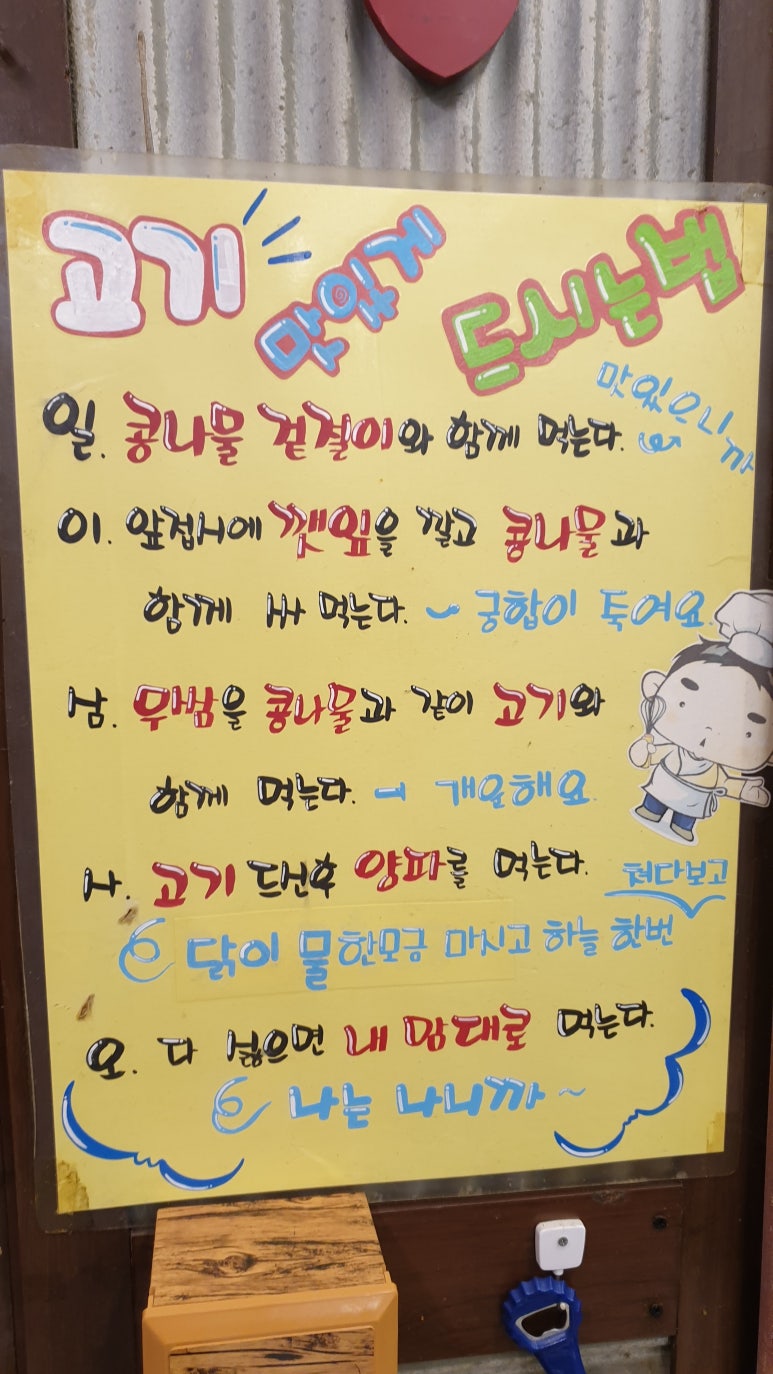 고기 맛있게 드시는법
일. 콩나물 겉절이와 함께 먹는다.
맛있으니까
이. 앞접시에 깻잎을 깔고 콩나물과
함께 싸 먹는다. ~ 궁합이 둑여요.
삼. 무쌈을 콩나물과 같이 고기와
함께 먹는다. - 개운해요
사. 고기 드신후 양파를 먹는다.
닭이 물한모금 마시고 하늘 한번 쳐다보고
오. 다 싫으면 내 맘대로 먹는다.
나는 나니까~